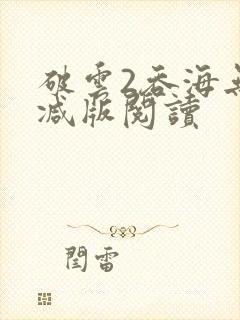 破雲2吞海無
減版閱讀
閆雷